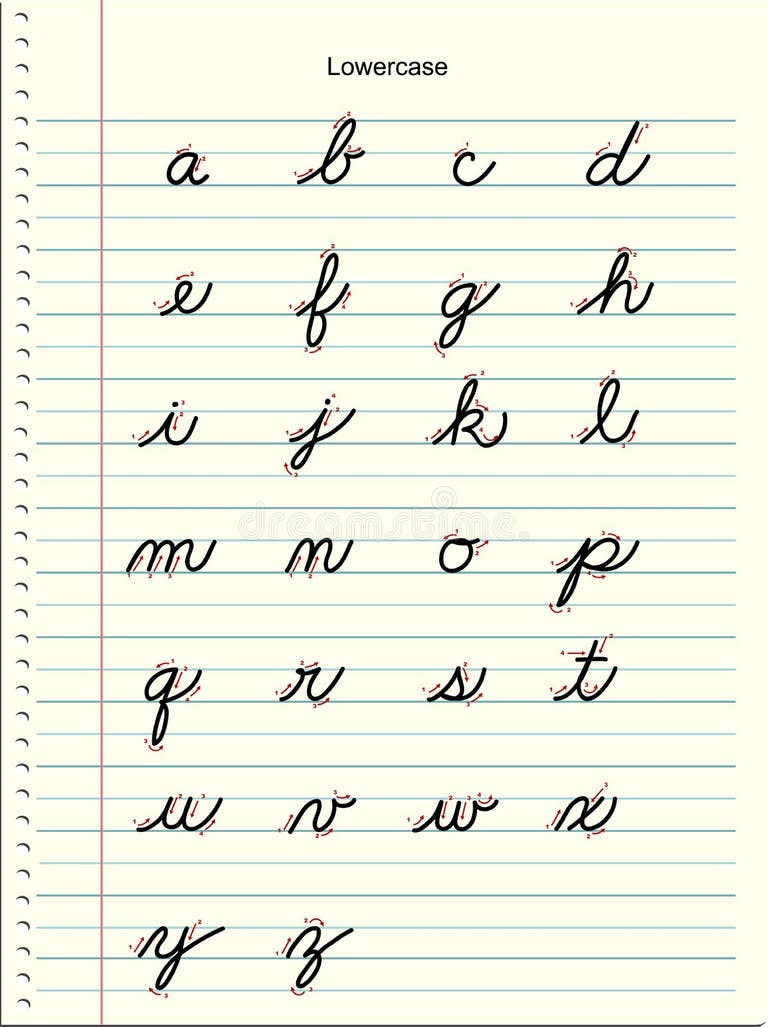 Lowercase
a b c d
e f g h
i j k l
m n o p
q r s t
u v w x
y z
dreamstime.com